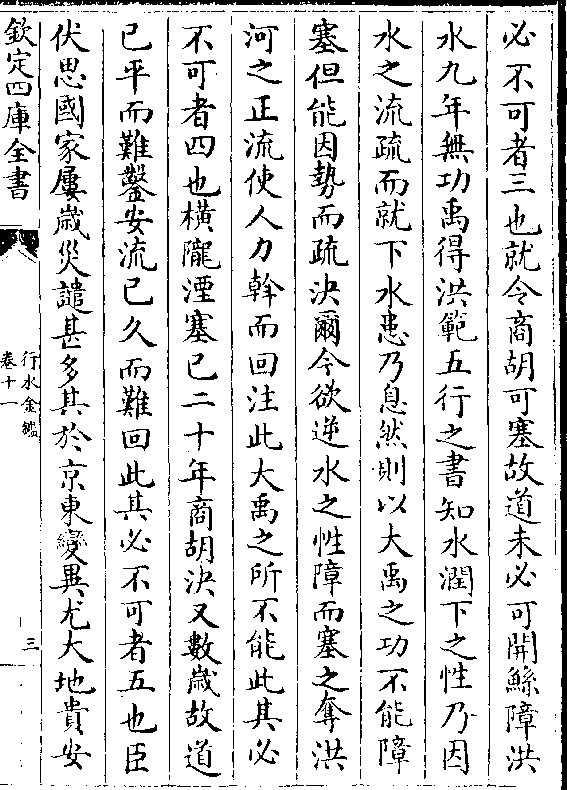 必不可者三也就令商胡可塞故道未必可開鯀障洪
水九年無功禹得洪範五行之書知水潤下之性乃因
水之流疏而就下水患乃息然則以大禹之功不能障
塞但能因勢而疏決爾今欲逆水之性障而塞之奪洪
河之正流使人力斡而回注此大禹之所不能此其必
不可者四也橫隴湮塞已二十年商胡決又數歲故道
已平而難鑿安流已久而難回此其必不可者五也臣
伏思國家屢歲災譴甚多其於京東變異尤大地貴安
欽定四庫全書
行水金鑑
卷十一
三